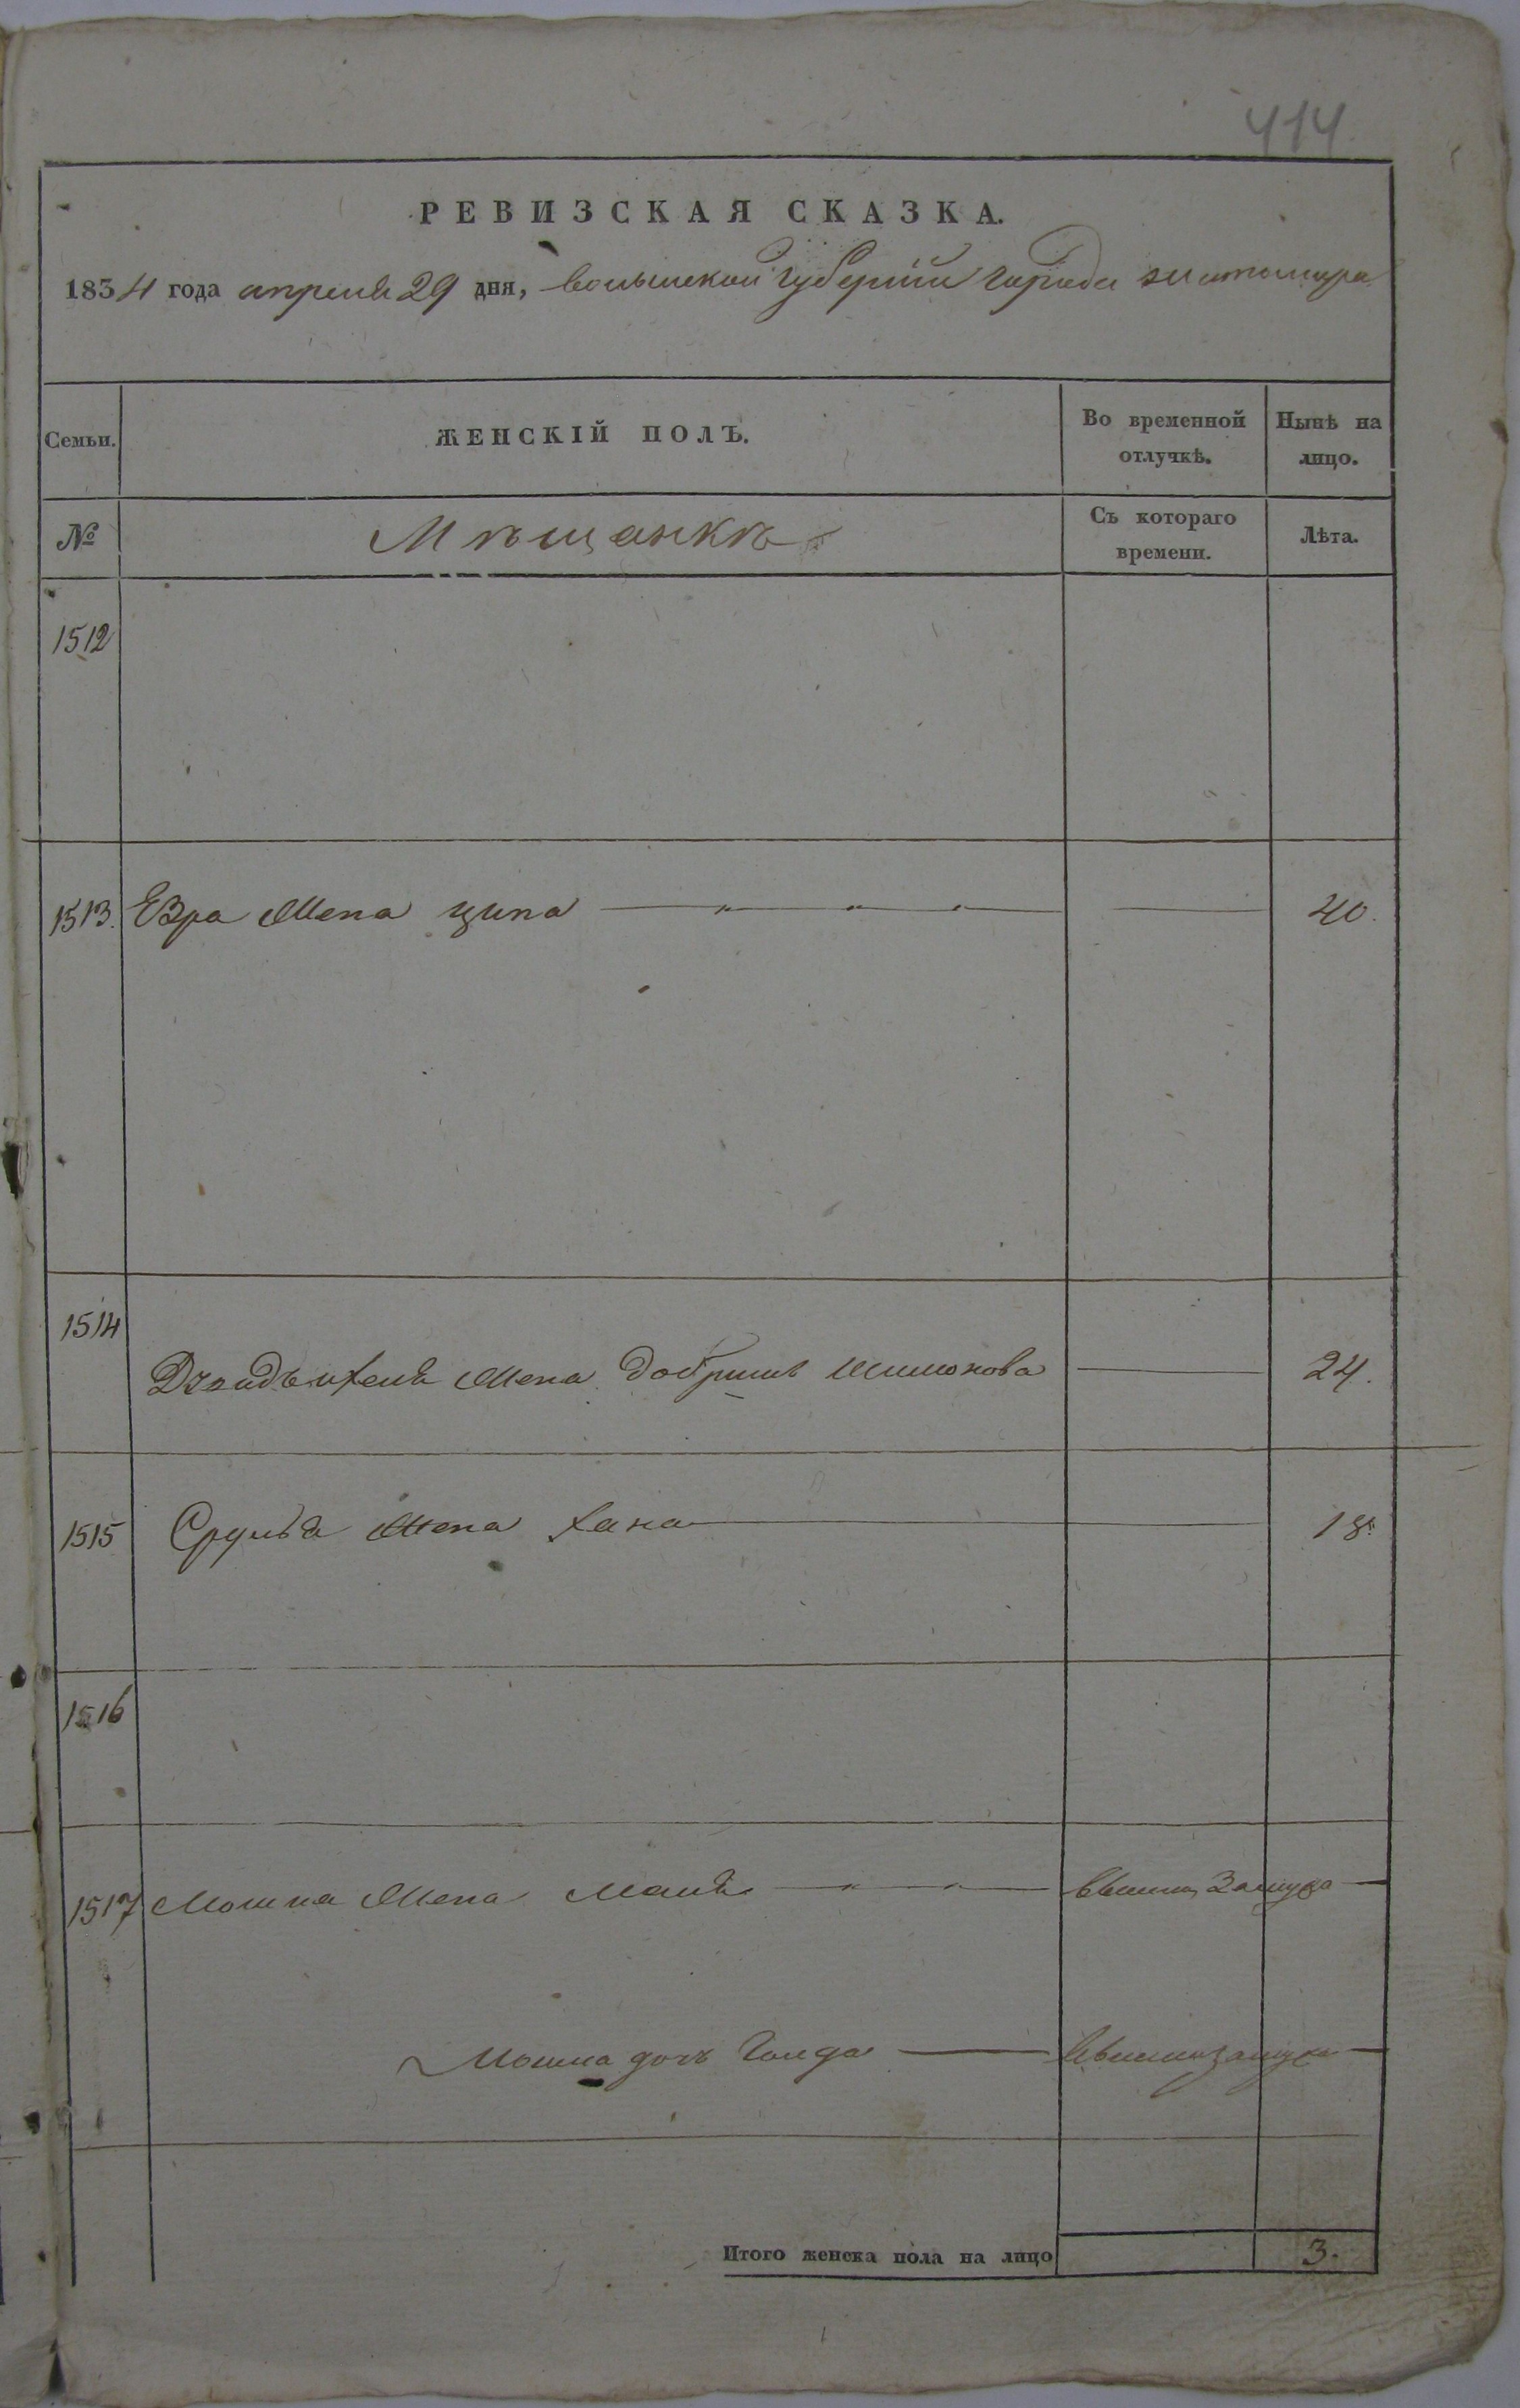 414
РЕВИЗСКАЯ СКАЗКА.
1834 года апреля 29 дня, волынской губернии города житомира
Семьи.
ЖЕНСКІЙ ПОЛЪ.
Во временной
отлучкѣ.
Нынѣ на
лицо.
№
Мѣщанкѣ
Съ котораго
времени.
Лѣта.
1512
1513. Евра Жена ципа — 40.
1514
Жена добриш Шимонова — 24.
1515 Сруля Жена хана — 18.
1516
1517 Мошка Жена Маля — вышла Замужъ —
Мошка дочь Голда — вышла замужъ —
Итого женска пола на лицо 3.